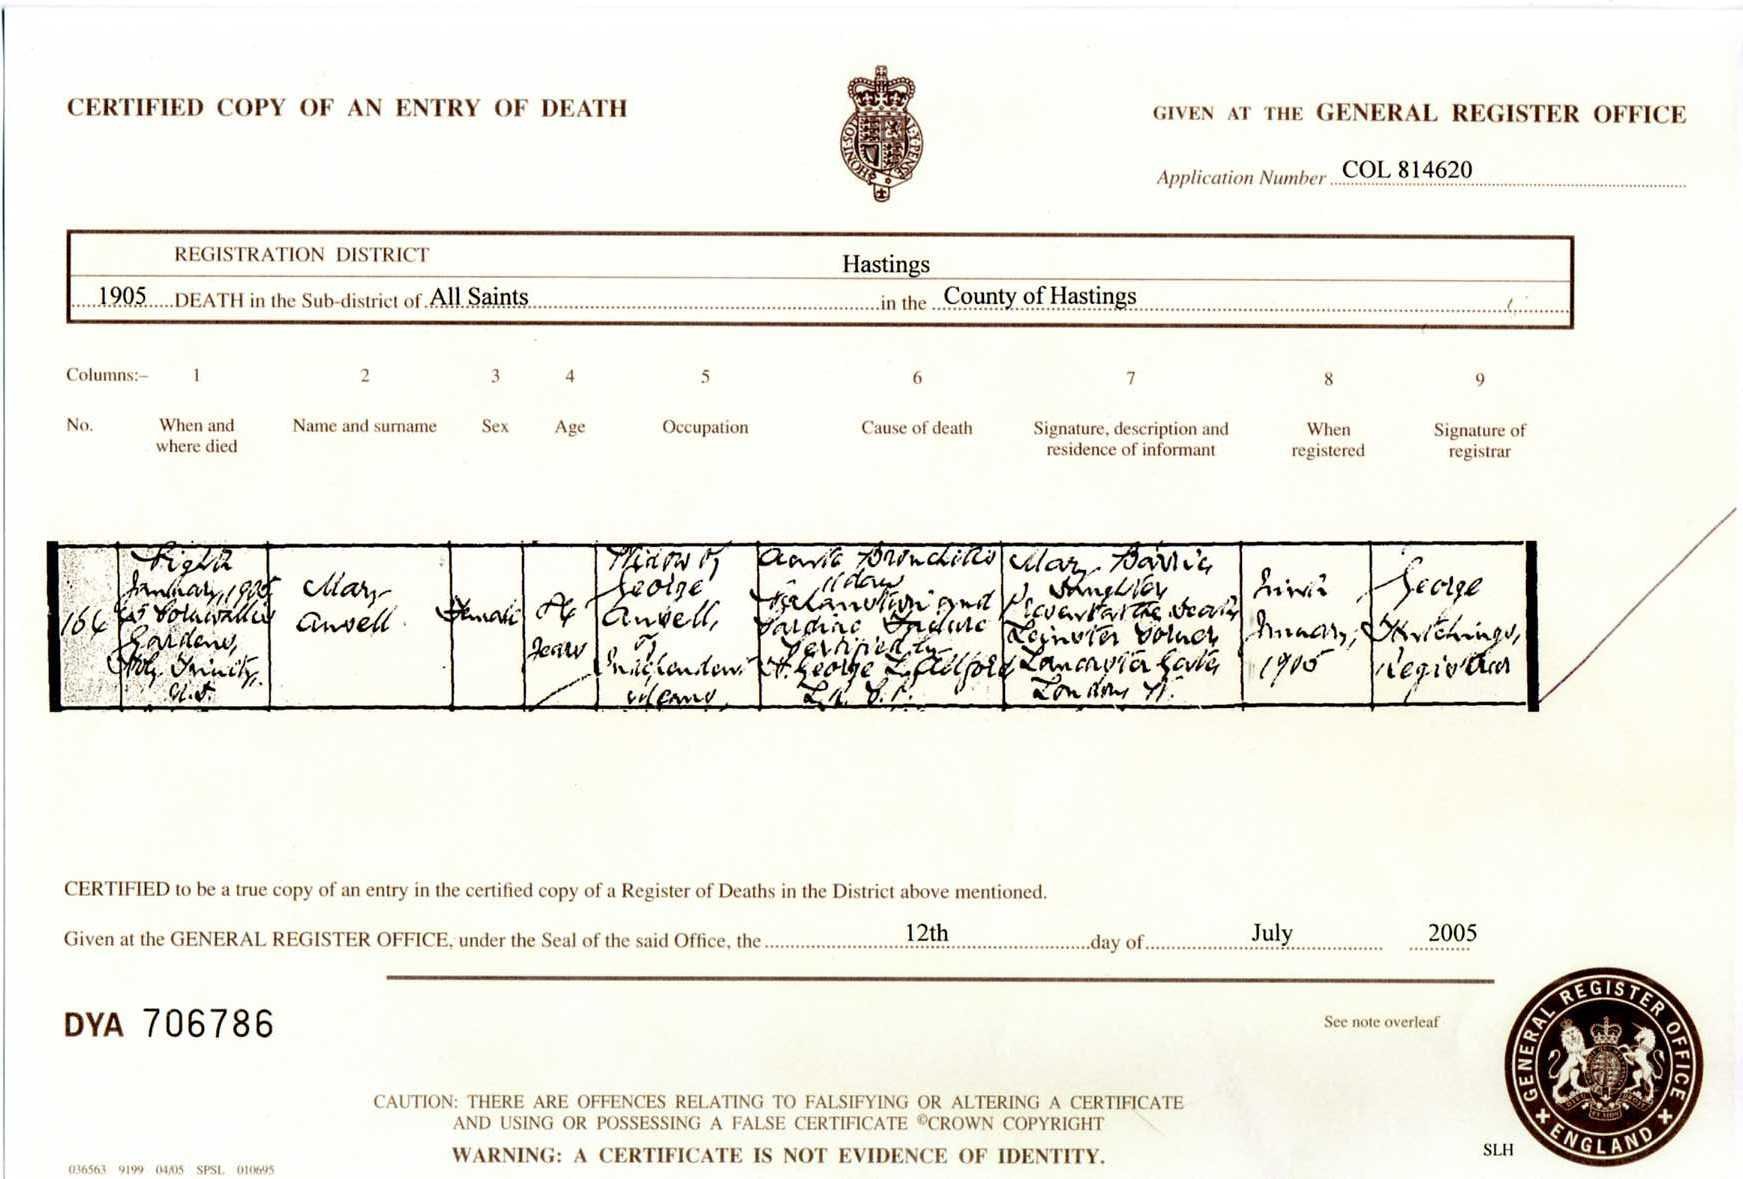 CERTIFIED COPY OF AN ENTRY OF DEATH
GIVEN AT THE GENERAL REGISTER OFFICE
Application Number COL 814620
HONI SOIT
REGISTRATION DISTRICT Hastings
1905 DEATH in the Sub-district of All Saints in the County of Hastings
Columns:- 1 2 3 4 5 6 7 8 9
No. When and where died Name and surname Sex Age Occupation Cause of death Signature, description and residence of informant When registered Signature of registrar
164
Eighth
January, 1905
Cornwallis
Gardens,
Holy Trinity,
U.D.
Mary
Anvell
Female
Years
Widow of
George
Anvell,
of
Independent
means
Acute Bronchitis
11 days
Exhaustion and
Cardiac Failure
Certified by
George
Mary Barrie
Daughter
Present at the death
Leinster Corner
Lancaster Gate
London W.
Ninth
January,
1905
George
Hutchings,
Registrar
CERTIFIED to be a true copy of an entry in the certified copy of a Register of Deaths in the District above mentioned.
Given at the GENERAL REGISTER OFFICE, under the Seal of the said Office, the 12th day of July 2005
DYA 706786
See note overleaf
CAUTION: THERE ARE OFFENCES RELATING TO FALSIFYING OR ALTERING A CERTIFICATE
AND USING OR POSSESSING A FALSE CERTIFICATE ©CROWN COPYRIGHT
WARNING: A CERTIFICATE IS NOT EVIDENCE OF IDENTITY.
036563 9199 04/05 SPSL 010695
SLH
GENERAL REGISTER OFFICE
ENGLAND